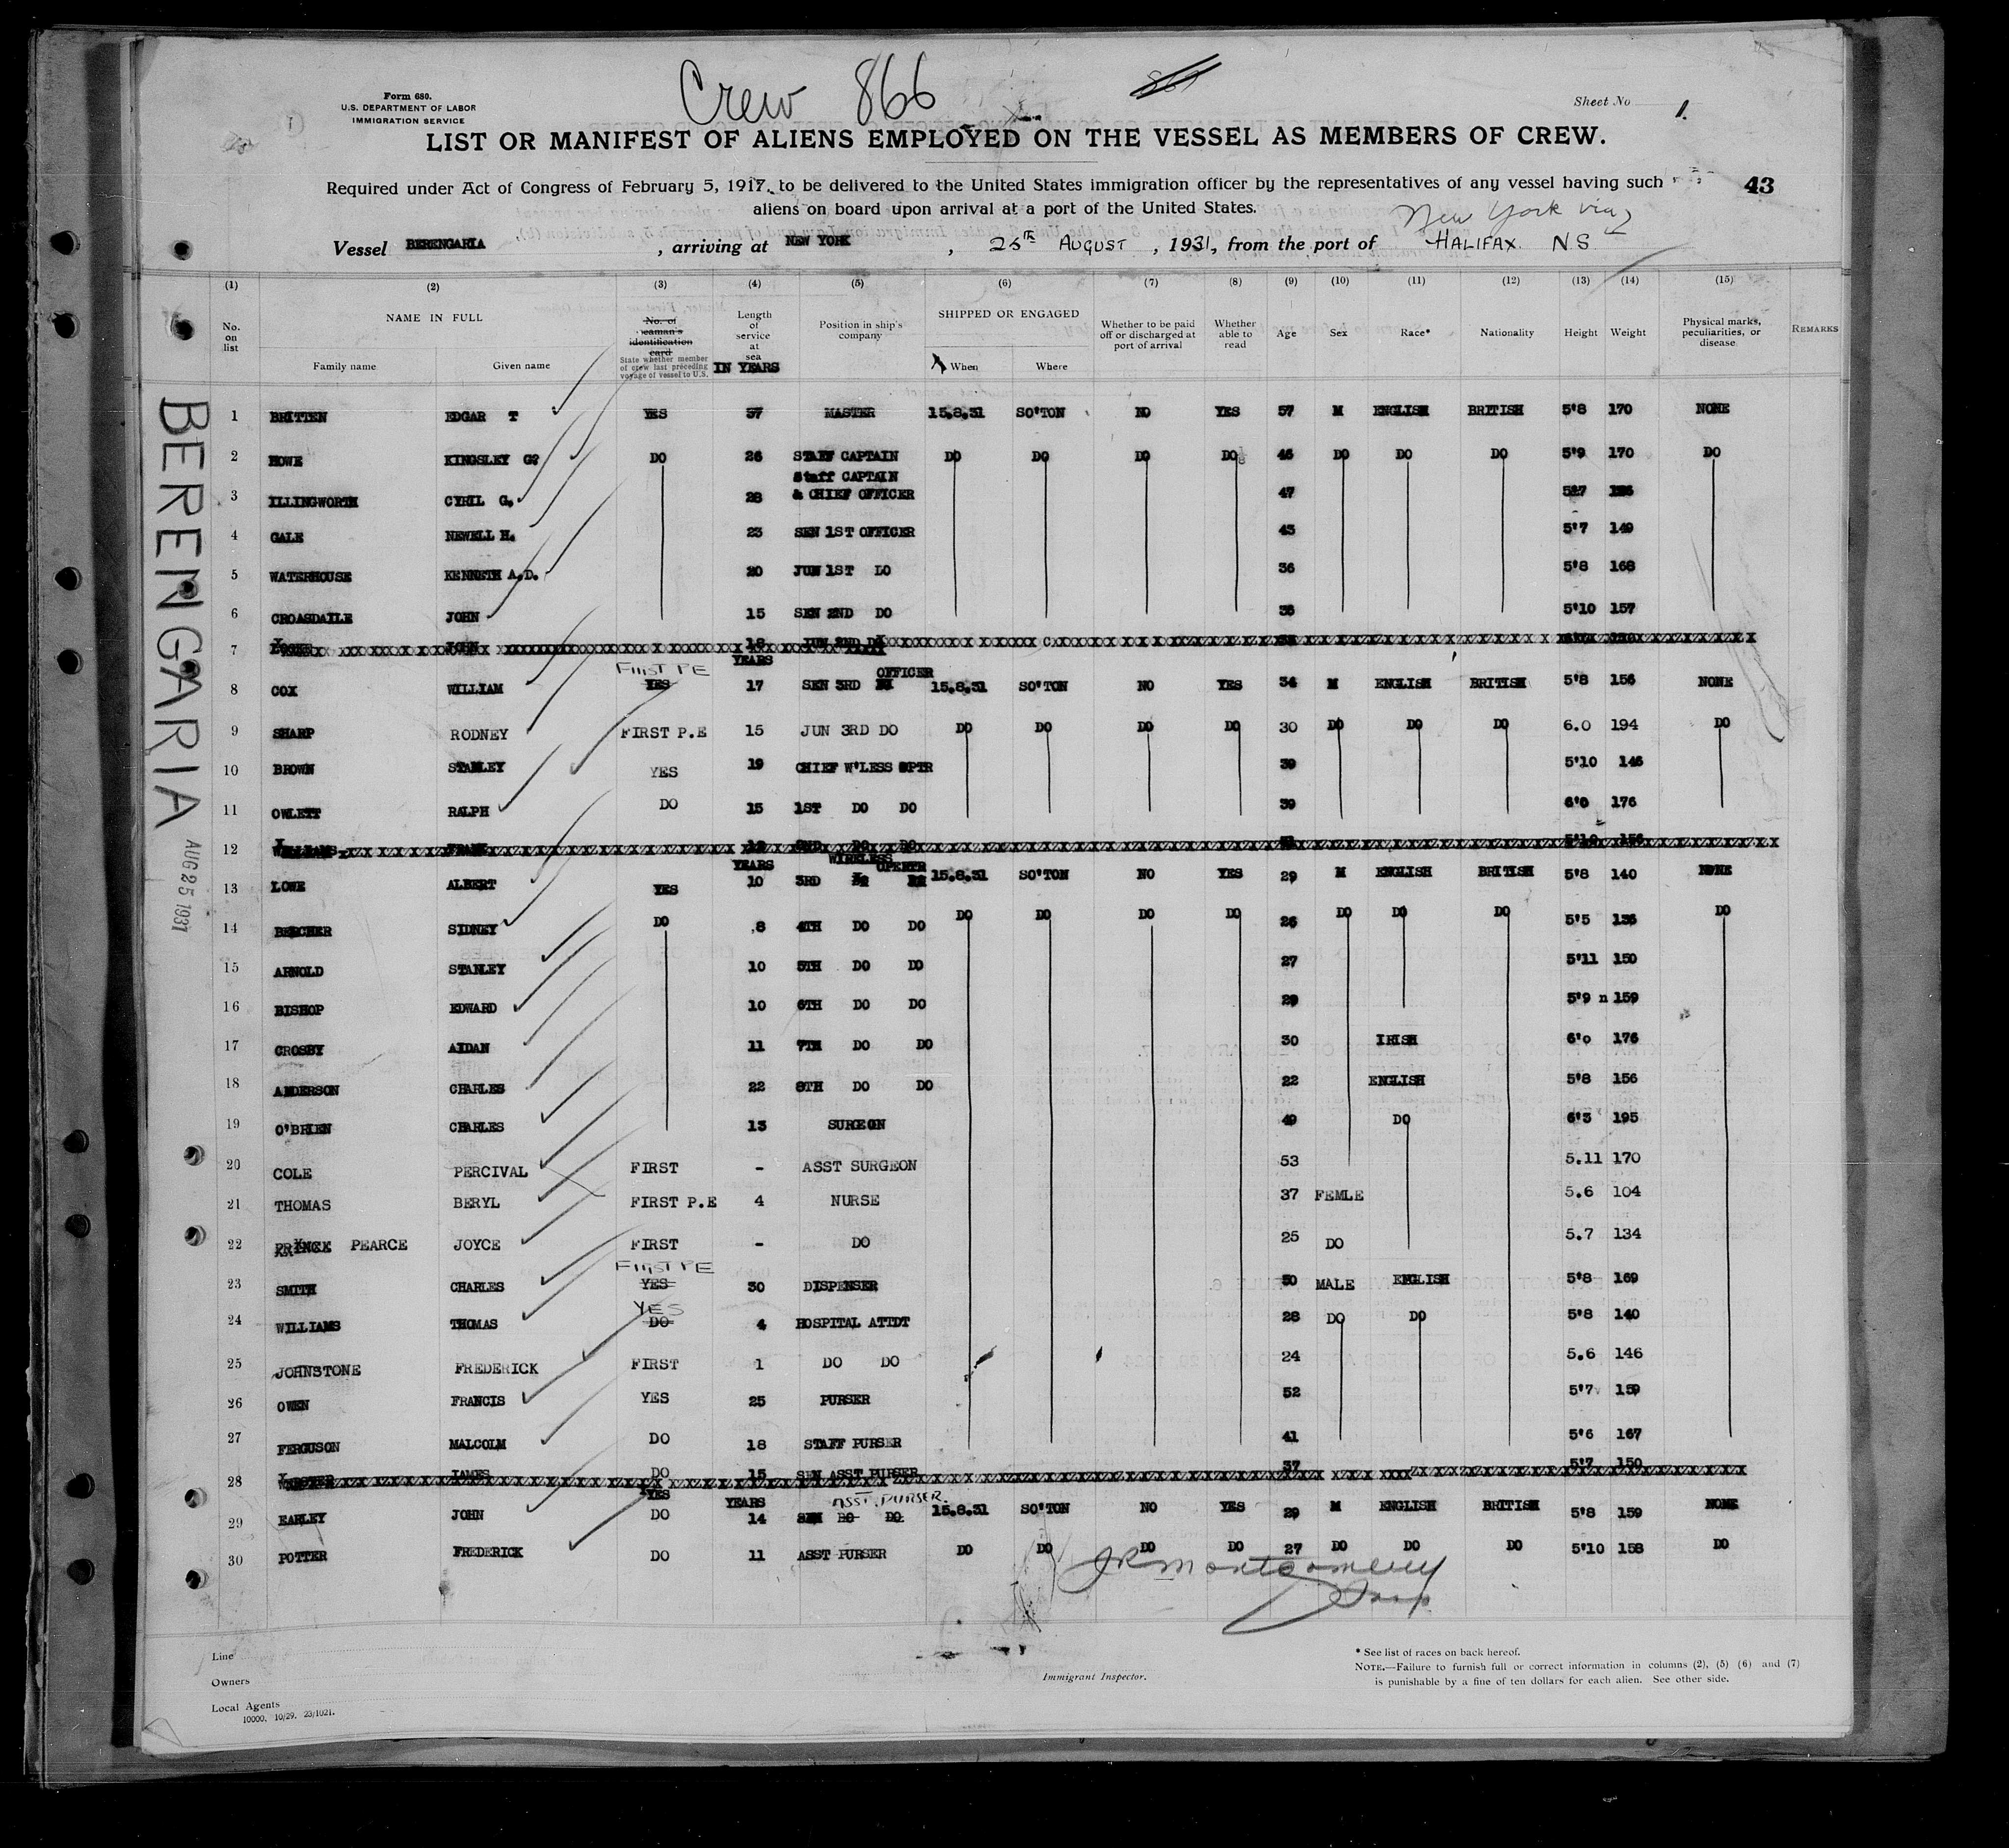 Crew 866
Form 680.
U.S. DEPARTMENT OF LABOR
IMMIGRATION SERVICE
Sheet No 1.
LIST OR MANIFEST OF ALIENS EMPLOYED ON THE VESSEL AS MEMBERS OF CREW.
Required under Act of Congress of February 5, 1917, to be delivered to the United States immigration officer by the representatives of any vessel having such
aliens on board upon arrival at a port of the United States.
43
New York via
Vessel BERENGARIA , arriving at NEW YORK , 25th AUGUST , 1931, from the port of HALIFAX N S
(1) (2) (3) (4) (5) (6) (7) (8) (9) (10) (11) (12) (13) (14) (15)
No. on list NAME IN FULL Family name Given name
No. of seaman's identification card State whether member of crew last preceding voyage of vessel to U.S.
Length of service at sea IN YEARS
Position in ship's company
SHIPPED OR ENGAGED When Where
Whether to be paid off or discharged at port of arrival
Whether able to read
Age Sex Race* Nationality Height Weight
Physical marks, peculiarities, or disease
REMARKS
1 BRITTEN EDGAR T YES 37 MASTER 15.8.31 SO'TON NO YES 57 M ENGLISH BRITISH 5'8 170 NONE
2 HOWE KINGSLEY G? DO 26 STAFF CAPTAIN DO DO DO DO 46 DO DO DO 5'9 170 DO
3 ILLINGWORTH CYRIL G. 28 Staff CAPTAIN & CHIEF OFFICER 47
4 GALE NEWELL H. 23 SEN 1ST OFFICER 43 5'7 149
5 WATERHOUSE KENNETH A.D. 20 JUN 1ST DO 36 5'8 168
6 CROASDAILE JOHN 15 SEN 2ND DO 5'10 157
7 JOHN 18 JUN 2ND DO
YEARS
FIRST PE OFFICER
8 COX WILLIAM YES 17 SEN 3RD 15.8.31 SO'TON NO YES 34 M ENGLISH BRITISH 5'8 156 NONE
9 SHARP RODNEY FIRST P.E 15 JUN 3RD DO DO DO DO DO 30 DO DO DO 6.0 194 DO
10 BROWN STANLEY YES 19 CHIEF W'LESS OPTR 39 5'10 146
11 OWLETT RALPH DO 15 1ST DO DO 39 6'0 176
12 WILLIAMS FRANK 2ND DO DO 5'10 156
YEARS WIRELESS OPERTR
13 LOWE ALBERT YES 10 3RD 15.8.31 SO'TON NO YES 29 M ENGLISH BRITISH 5'8 140 NONE
14 BEECHER SIDNEY DO 8 4TH DO DO DO DO DO DO 26 DO DO DO 5'5 136 DO
15 ARNOLD STANLEY 10 5TH DO DO 27 5'11 150
16 BISHOP EDWARD 10 6TH DO DO 29 5'9 n 159
17 CROSBY AIDAN 11 7TH DO DO 30 IRISH 6'0 176
18 ANDERSON CHARLES 22 8TH DO DO 22 ENGLISH 5'8 156
19 O'BRIEN CHARLES 13 SURGEON 49 DO 6'3 195
20 COLE PERCIVAL FIRST - ASST SURGEON 53 5.11 170
21 THOMAS BERYL FIRST P.E 4 NURSE 37 FEMLE 5.6 104
22 PEARCE JOYCE FIRST - DO 25 DO 5.7 134
FIRST PE
23 SMITH CHARLES YES 30 DISPENSER 50 MALE ENGLISH 5'8 169
YES
24 WILLIAMS THOMAS DO 4 HOSPITAL ATTDT 28 DO DO 5'8 140
25 JOHNSTONE FREDERICK FIRST 1 DO DO 24 5.6 146
26 OWEN FRANCIS YES 25 PURSER 52 5'7 159
27 FERGUSON MALCOLM DO 18 STAFF PURSER 41 5'6 167
28 WEBSTER JAMES DO 15 SEN ASST PURSER 37 5'7 150
YES YEARS ASST. PURSER.
29 EARLEY JOHN DO 14 SEN DO DO 15.8.31 SO'TON NO YES 29 M ENGLISH BRITISH 5'8 159 NONE
30 POTTER FREDERICK DO 11 ASST PURSER DO DO DO DO 27 DO DO DO 5'10 158 DO
JR Montgomery
Insp
BERENGARIA
AUG 25 1931
Line
Owners
Local Agents
10000, 10/29, 23/1021.
Immigrant Inspector.
* See list of races on back hereof.
NOTE.—Failure to furnish full or correct information in columns (2), (5) (6) and (7)
is punishable by a fine of ten dollars for each alien. See other side.